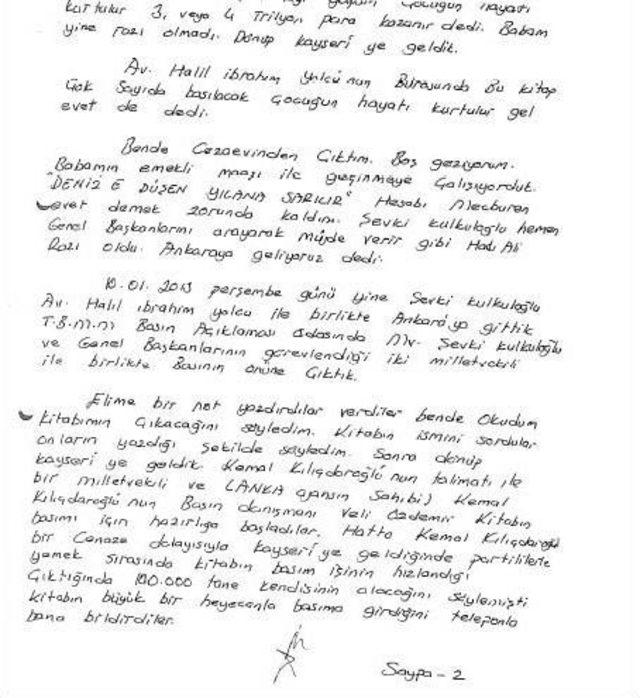 Çocuğun hayatı
kurtulur 3, veya 4 Trilyon para kazanır dedi. Babam
yine razı olmadı. Dönüp kayseri ye geldik.
Av. Halil ibrahim Yolcu'nun Bürosunda Bu kitap
Çok Sayıda basılacak Çocuğun hayatı kurtulur gel
evet de dedi.
Bende Cezaevinden Çıktım. Boş geziyorum.
Babamın emekli maaşı ile geçinmeye Çalışıyorduk.
"DENİZ E DÜŞEN YILANA SARILIR" Hesabı Mecburen
evet demek zorunda kaldım. Şevki kulkuloğlu hemen
Genel Başkanlarını arayarak Müjde verir gibi Hacı Ali
Razı oldu. Ankaraya geliyoruz dedi.
10.01.2013 perşembe günü yine Şevki kulkuloğlu
Av. Halil ibrahim yolcu ile birlikte Ankara'ya gittik
T.B.M.M Basın Açıklaması Odasında Mv. Şevki kulkuloğlu
ve Genel Başkanlarının görevlendiği iki milletvekili
ile birlikte Basının önüne Çıktık.
Elime bir not yazdırdılar verdiler bende Okudum
kitabımın Çıkacağını söyledim. Kitabın ismini sordular
onların yazdığı şekilde söyledim. Sonra dönüp
kayseri ye geldik. Kemal Kılıçdaroğlu'nun talimatı ile
bir milletvekili ve (ANKA ajansın Sahibi) Kemal
Kılıçdaroğlu'nun Basın danışmanı Veli Özdemir Kitabın
basımı için hazırlığa başladılar. Hatta Kemal Kılıçdaroğlu
bir Cenaze dolayısıyla kayseri'ye geldiğinde partililerle
yemek sırasında kitabın basım işinin hızlandığı
Çıktığında 100.000 tane kendisinin alacağını söylemişti
kitabın büyük bir heyecanla basıma girdiğini telefonla
bana bildirdiler.
Sayfa - 2